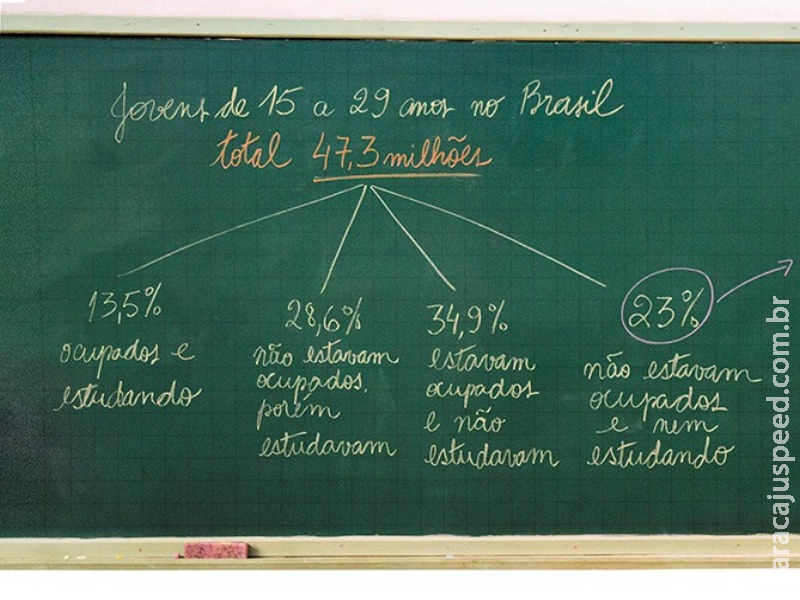 Jovens de 15 a 29 anos no Brasil
total 47,3 milhões
13,5%
ocupados e
estudando
28,6%
não estavam
ocupados,
porém
estudavam
34,9%
estavam
ocupados
e não
estudavam
23%
não estavam
ocupados
e nem
estudando
aracajuspeed.com.br